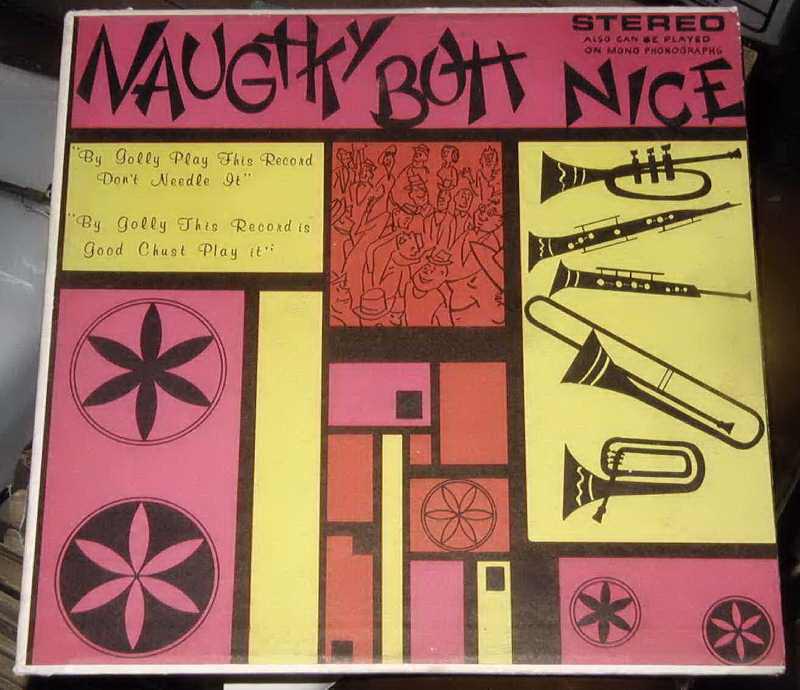 NAUGHTY BUTT NICE
STEREO
ALSO CAN BE PLAYED
ON MONO PHONOGRAPHS
"By Golly Play This Record
Don't Needle It"
"By Golly This Record is
Good Chust Play it"